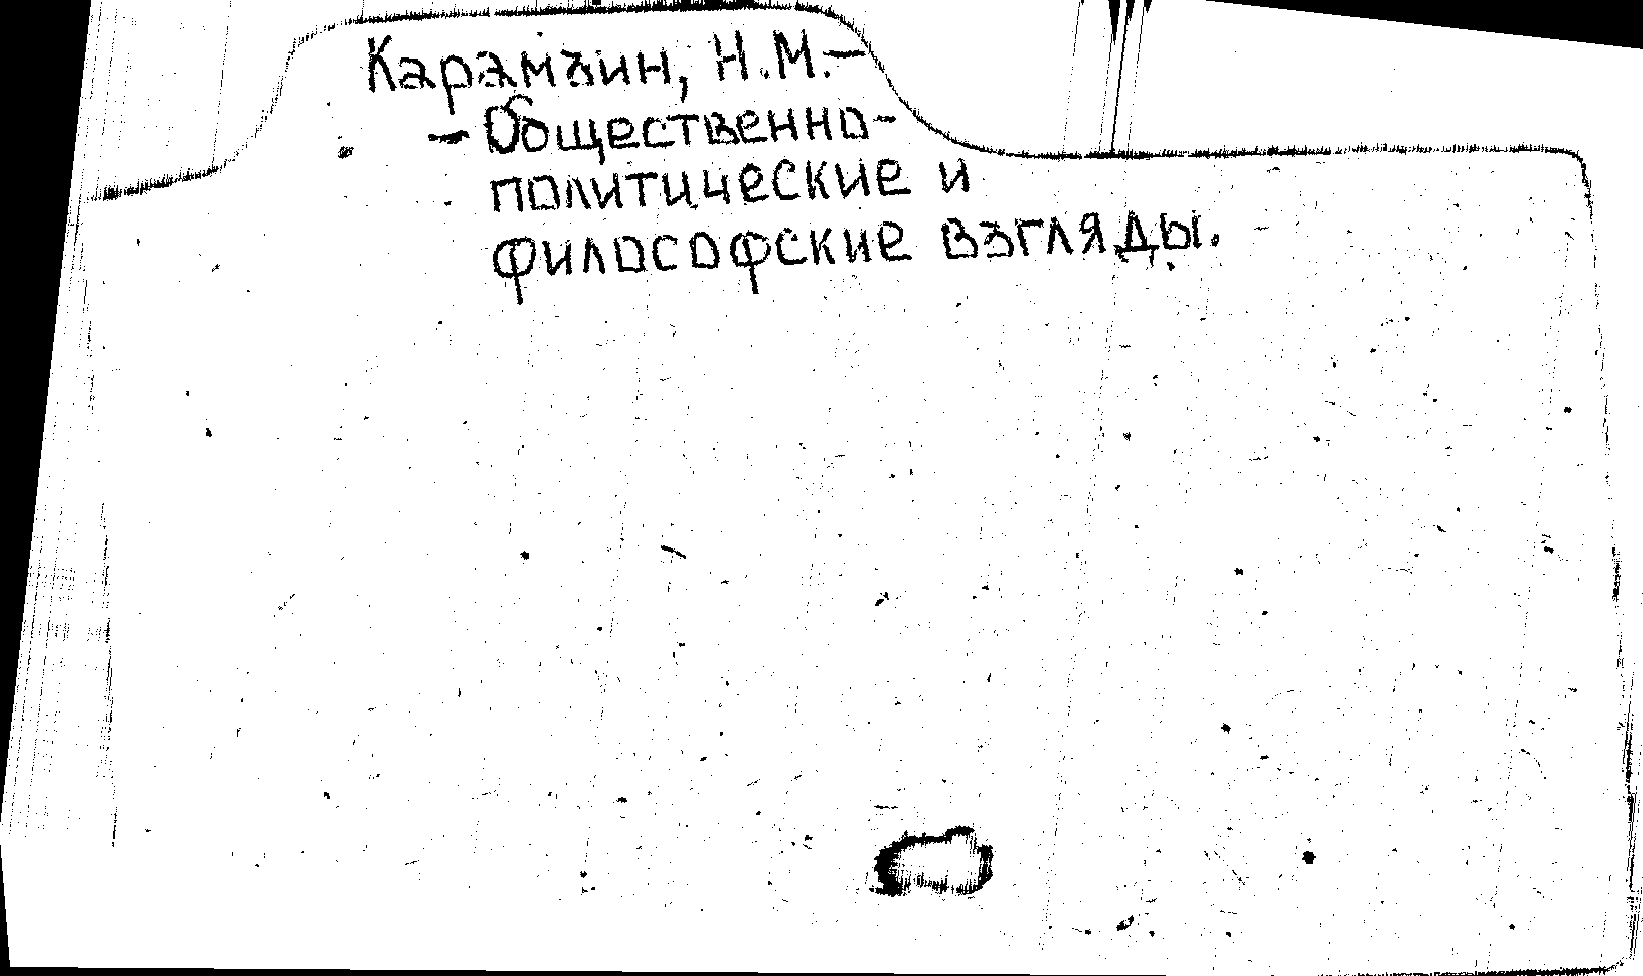 Карамзин, Н.М.—
— Общественно-
политические и
философские взгляды.